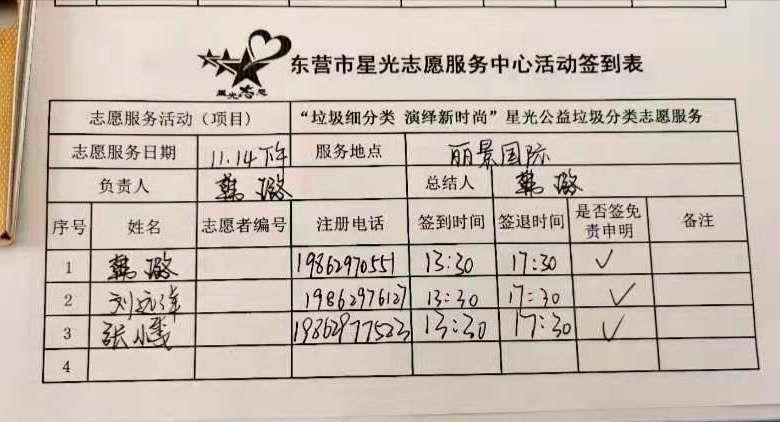 星光志愿
东营市星光志愿服务中心活动签到表
志愿服务活动（项目） “垃圾细分类 演绎新时尚”星光公益垃圾分类志愿服务
志愿服务日期 11.14下午 服务地点 丽景国际
负责人 韩璐 总结人 韩璐
序号 姓名 志愿者编号 注册电话 签到时间 签退时间 是否签免责申明 备注
1 韩璐 19862970551 13:30 17:30 ✓
2 刘远洋 19862976127 13:30 17:30 ✓
3 张小 19862977523 13:30 17:30 ✓
4